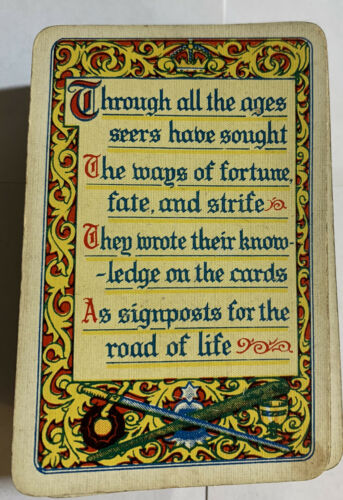 Through all the ages
seers have sought
The ways of fortune,
fate, and strife
They wrote their know-
-ledge on the cards
As signposts for the
road of life